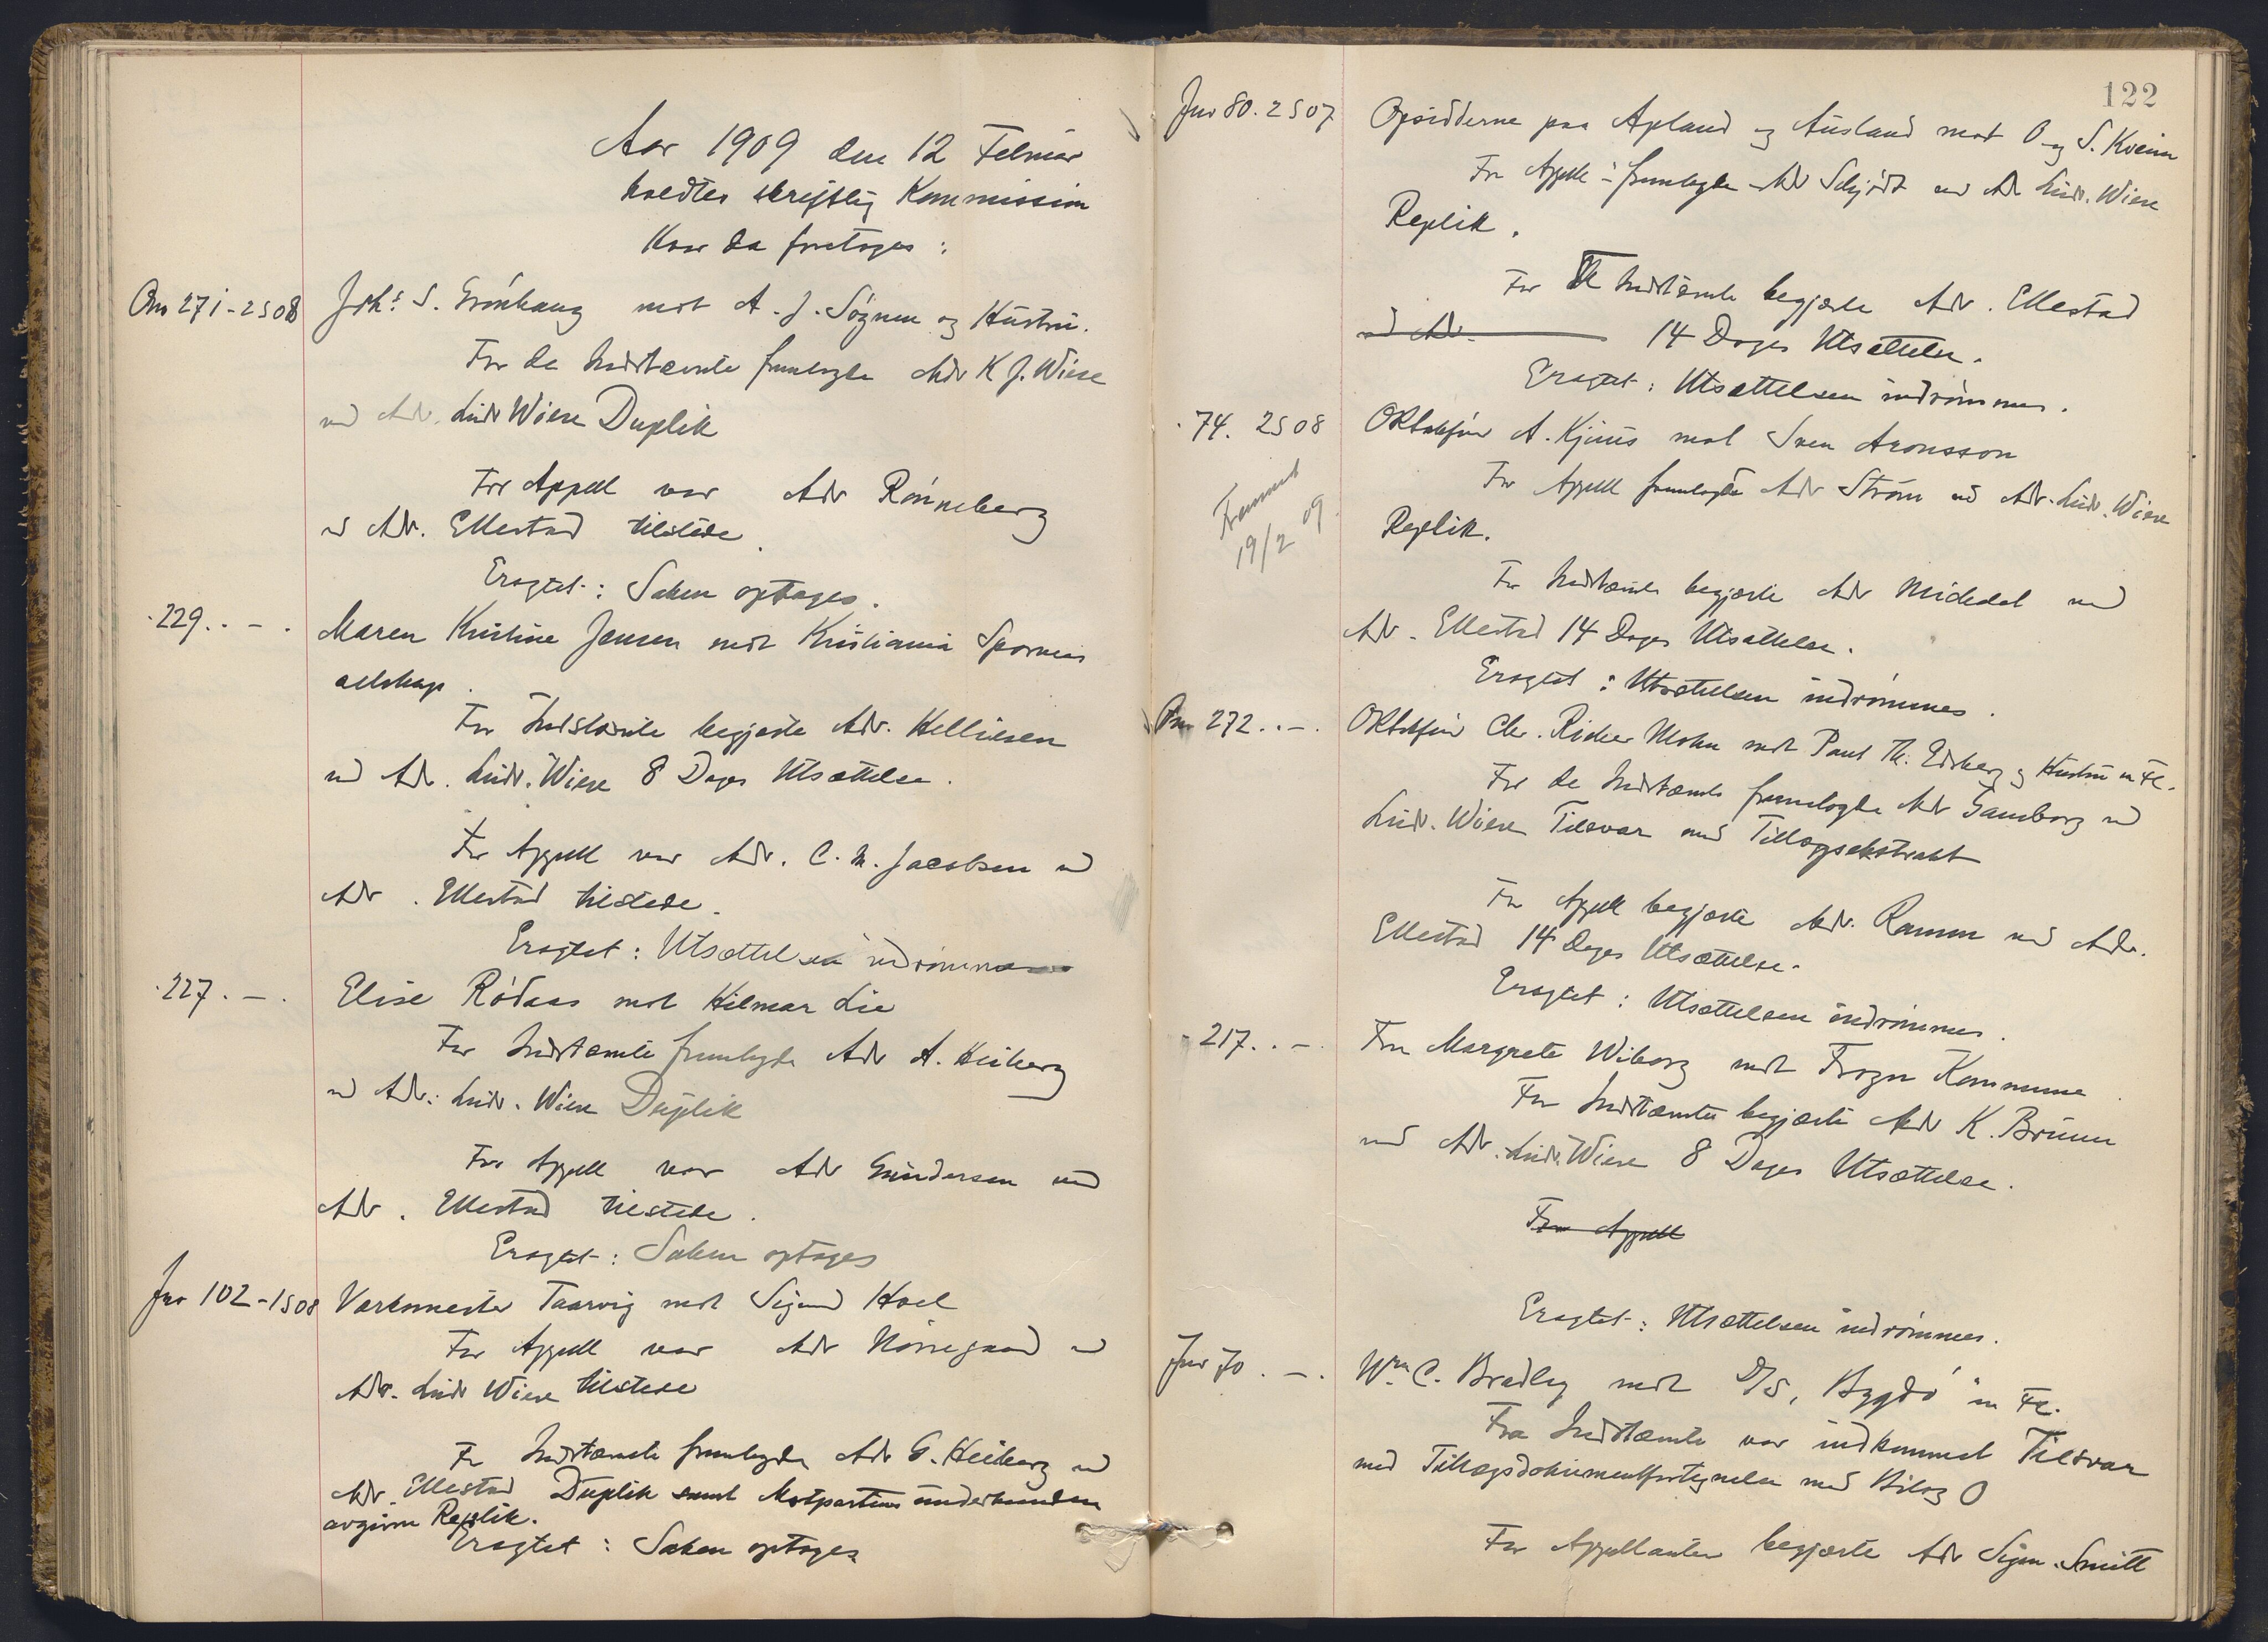 Aar 1909 den 12 Februar
holdtes skriftlig Kommission
Hvor da foretoges :
Om 271 - 2 S 08 Johs S. Grönhaug mot A. J. Sögnen og Hustru.
For de Indstævnte fremlagde Adv K J. Wiese
ved Adv. Ludv Wiese Duplik
For Appell var Adv Rönneberg
v Adv. Ellestad tilstede.
Eragtet : Saken optages.
" 229 . . - . Maren Kristine Jensen mot Kristiania Sporveis
selskap.
For Indstævnte begjærte Adv. Helliesen
ved Adv. Ludv. Wiese 8 Dages Utsættelse.
For Appell var Adv. C. M. Jacobsen v
Adv . Ellestad tilstede.
Eragtet : Utsættelsen indrömmes
" 227 . - . Elise Rödaas mot Hilmar Lie
For Indstævnte fremlagde Adv A. Heiberg
v Adv. Ludv. Wiese Duplik
For Appell var Adv Gundersen ved
Adv . Ellestad tilstede.
Eragtet : Saken optages
Jnv 102 - 1 S 08 Værksmester Taarvig mot Sigurd Hoel
For Appell var Adv Nörregaard v
Adv. Ludv Wiese tilstede
For Indstævnte fremlagde Adv G. Heiberg v
Adv. Ellestad Duplik samt Motpartens underhaanden
avgivne Replik.
Eragtet : Saken optages
122
Jnv 80. 2 S 07 Opsidderne paa Apland og Ausland mot O og S. Kveim
For Appell fremlagde Adv Schjödt ved Adv Ludv. Wiese
Replik.
For Indstævnte begjærte Adv. Ellestad
ved Adv. 14 Dages Utsættelse.
Eragtet : Utsættelsen indrömmes.
" 74. 2 S 08 ORSakförer A. Kjuus mot Sven Aronsson
For Appell fremlagde Adv Ström ved Adv. Ludv. Wiese
Replik.
19/2 09
For Indstævnte begjærte Adv Midedal ved
Adv. Ellestad 14 Dages Utsættelse.
Eragtet : Utsættelsen indrömmes.
Om 272 . . - . ORSakförer Chr. Rieber Mohn mot Paul Th. Edsberg og Hustru m Fl.
For de Indstævnte fremlagde Adv Gamborg v
Ludv. Wiese Tilsvar med Tillægsekstrakt
For Appell begjærte Adv. Ramm ved Adv.
Ellestad 14 Dages Utsættelse.
Eragtet : Utsættelsen indrömmes.
" 217 . . - . Fru Margrete Wiborg mot Frogn Kommune
For Indstævnte begjærte Adv K. Bruun
ved Adv. Ludv. Wiese 8 Dages Utsættelse.
For Appell
Eragtet : Utsættelsen indrömmes.
Jnv 70 . - . Wm C. Bradley mot D/S, Bygdö" m Fl.
Fra Indstævnte var indkommet Tilsvar
med Tillægsdokumentfortegnelse med Bilag O
For Appellanten begjærte Adv Sigm. Smitt